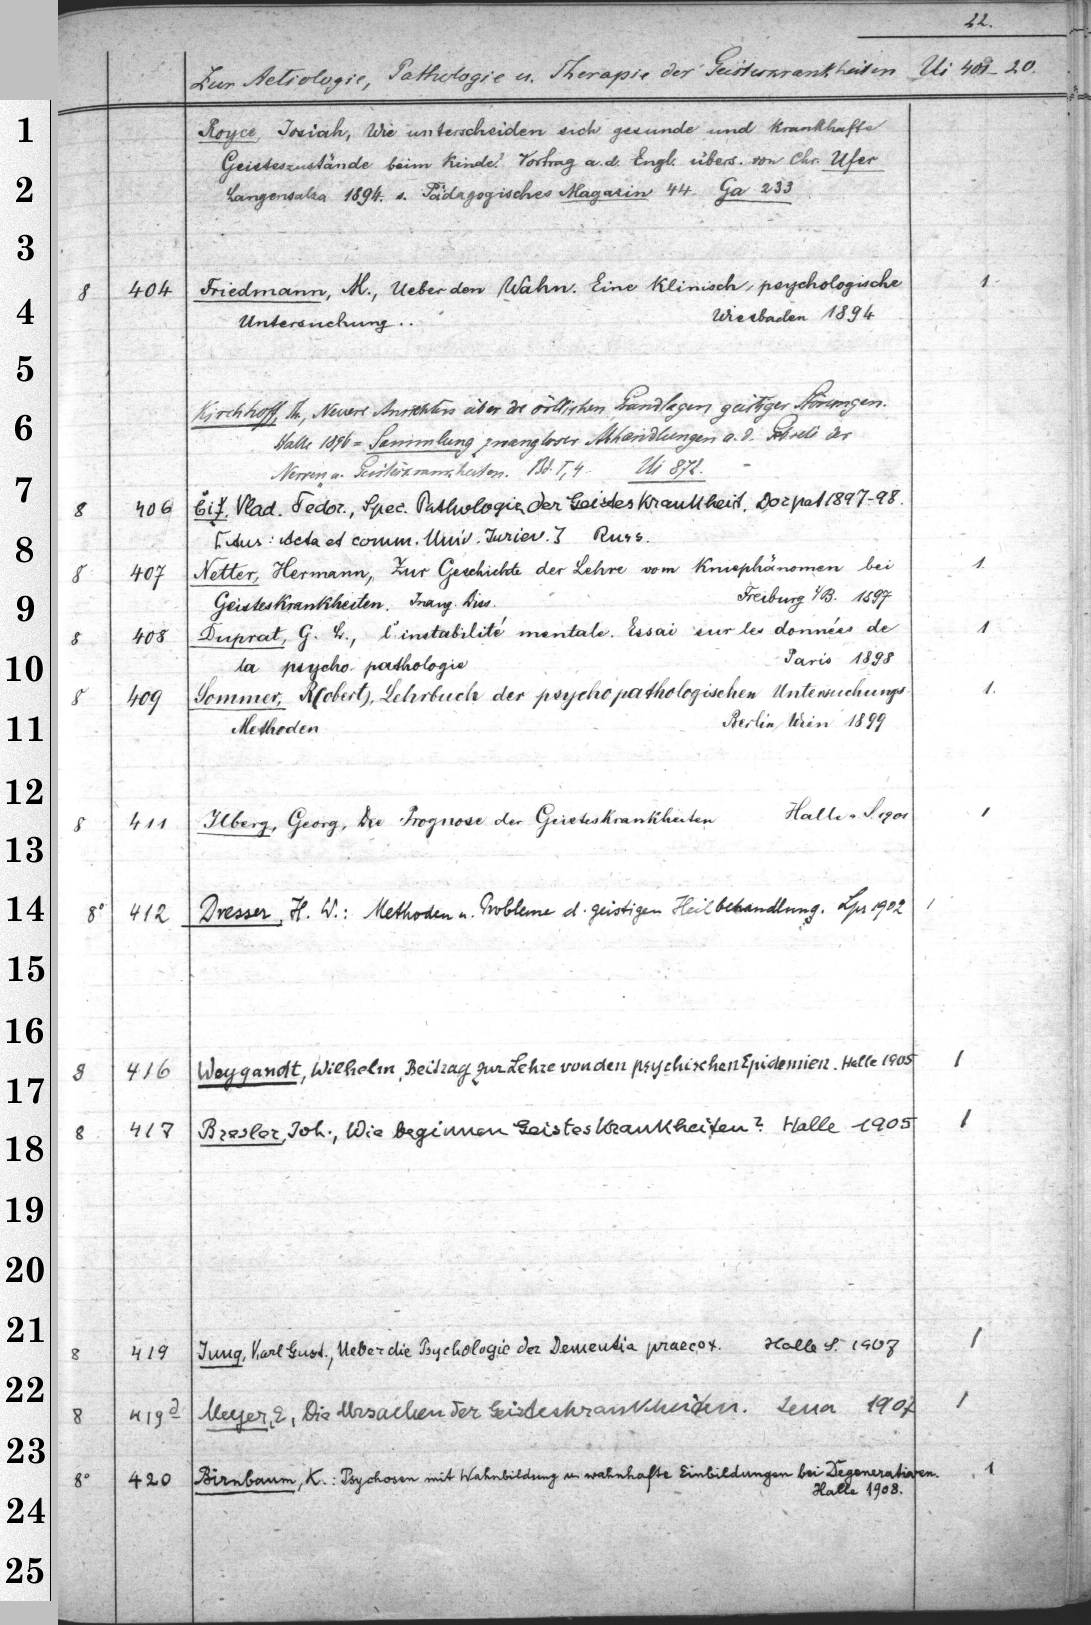 22.
Zur Aetiologie, Pathologie u. Therapie der Geisteskrankheiten Ui 403-20.
1
Royce, Josiah, Wie unterscheiden sich gesunde und krankhafte
Geisteszustände beim Kinde? Vortrag a.d. Engl. übers. von Chr. Ufer
2
Langensalza 1894. s. Pädagogisches Magazin 44. Ga 233
3
8 404 Friedmann, M., Ueber den Wahn. Eine Klinisch, psychologische 1
4
Untersuchung .. Wiesbaden 1894
5
Kirchhoff, Th., Neuere Ansichten über die örtlichen Grundlagen geistiger Störungen.
6
Halle 1896 = Sammlung zwangloser Abhandlungen a.d. Gebiete der
Nerven u. Geisteskrankheiten. Bd. I, 4. Ui 872.
7
8 406 Čiž, Vlad. Fedor., Spec. Pathologie der Geisteskrankheit. Dorpat 1897-98.
8
[Aus: Acta et comm. Univ. Juriev.] Russ.
8 407 Netter, Hermann, Zur Geschichte der Lehre vom Kniephänomen bei 1
9
Geisteskrankheiten. Inaug. Diss. Freiburg i/B. 1897
8 408 Duprat, G. L., l'instabilité mentale. Essai sur les données de 1
10
la psycho-pathologie Paris 1898
8 409 Sommer, R(obert), Lehrbuch der psychopathologischen Untersuchungs- 1.
11
Methoden Berlin, Wien 1899
12
8 411 Ilberg, Georg, Die Prognose der Geisteskrankheiten Halle a. S. 1901 1
13
14
8° 412 Dresser, H. W.: Methoden u. Probleme d. geistigen Heilbehandlung. Lpz 1902 1
15
16
8 416 Weygandt, Wilhelm, Beitrag zur Lehre von den psychischen Epidemien. Halle 1905 1
17
8 417 Bresler, Joh., Wie beginnen Geisteskrankheiten? Halle 1905 1
18
19
20
21
8 419 Jung, Karl Gust., Ueber die Psychologie der Dementia praecox. Halle S. 1907 1
22
8 419a Meyer, E, Die Ursachen der Geisteskrankheiten. Jena 1907 1
23
8° 420 Birnbaum, K.: Psychosen mit Wahnbildung u. wahnhafte Einbildungen bei Degenerativen. 1
Halle 1908.
24
25